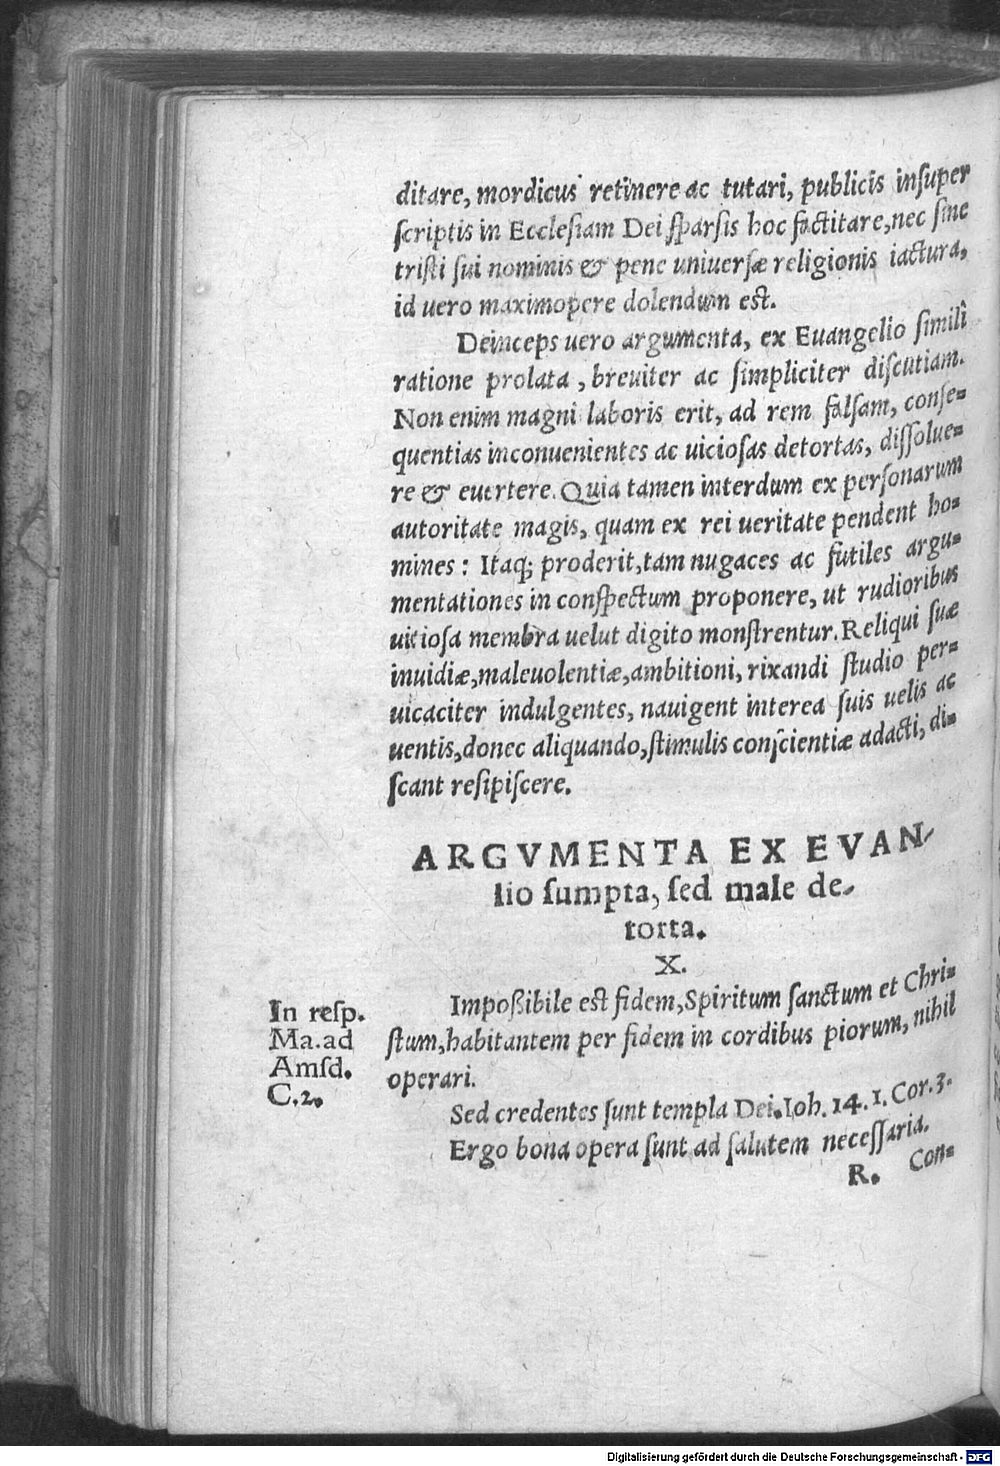 ditare, mordicus retinere ac tutari, publicis inſuper
ſcriptis in Eccleſiam Dei ſparſis hoc factitare, nec ſine
triſti ſui nominis & pene uniuerſæ religionis iactura,
id uero maximopere dolendum eſt.
Deinceps uero argumenta, ex Euangelio ſimili
ratione prolata, breuiter ac ſimpliciter diſcutiam.
Non enim magni laboris erit, ad rem falſam, conſe-
quentias inconuenientes ac uicioſas detortas, diſſolue-
re & euertere. Quia tamen interdum ex perſonarum
autoritate magis, quam ex rei ueritate pendent ho-
mines: Itaq; proderit, tam nugaces ac futiles argu-
mentationes in conſpectum proponere, ut rudioribus
uicioſa membra uelut digito monſtrentur. Reliqui ſuæ
inuidiæ, maleuolentiæ, ambitioni, rixandi ſtudio per-
uicaciter indulgentes, nauigent interea ſuis uelis ac
uentis, donec aliquando, ſtimulis conſcientiæ adacti, di-
ſcant reſipiſcere.
ARGVMENTA EX EVAN-
lio ſumpta, ſed male de-
torta.
X.
Impoßibile eſt fidem, Spiritum ſanctum et Chri-
ſtum, habitantem per fidem in cordibus piorum, nihil
operari.
In reſp.
Ma. ad
Amſd.
C. 2.
Sed credentes ſunt templa Dei. Ioh. 14. 1. Cor. 3.
Ergo bona opera ſunt ad ſalutem neceſſaria.
R. Con-
Digitalisierung gefördert durch die Deutsche Forschungsgemeinschaft - DFG